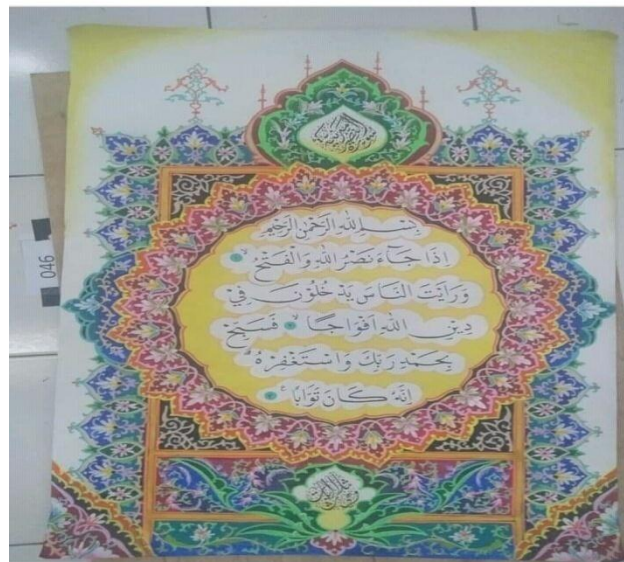 بِسْمِ اللّٰهِ الرَّحْمٰنِ الرَّحِيْمِ
اِذَا جَآءَ نَصْرُ اللّٰهِ وَالْفَتْحُ ۙ
وَرَاَيْتَ النَّاسَ يَدْخُلُوْنَ فِيْ
دِيْنِ اللّٰهِ اَفْوَاجًا ۙ فَسَبِّحْ
بِحَمْدِ رَبِّكَ وَاسْتَغْفِرْهُ ۗ
اِنَّهٗ كَانَ تَوَّابًا ࣖ
046